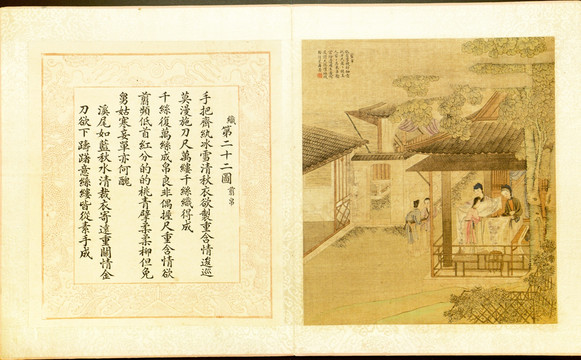 織第二十二圖 剪帛
手把齊紈冰雪清秋衣欲製重含情逡巡
莫漫施刀尺萬縷千絲織得成
千絲復萬絲成帛良非偶揮尺重含情欲
剪頻低首紅分的的桃青擘柔柔柳但免
舅姑寒妾單亦何醜
溪尾如藍秋水清裁衣寄遠重關情金
刀欲下躊躇意絲縷皆從素手成